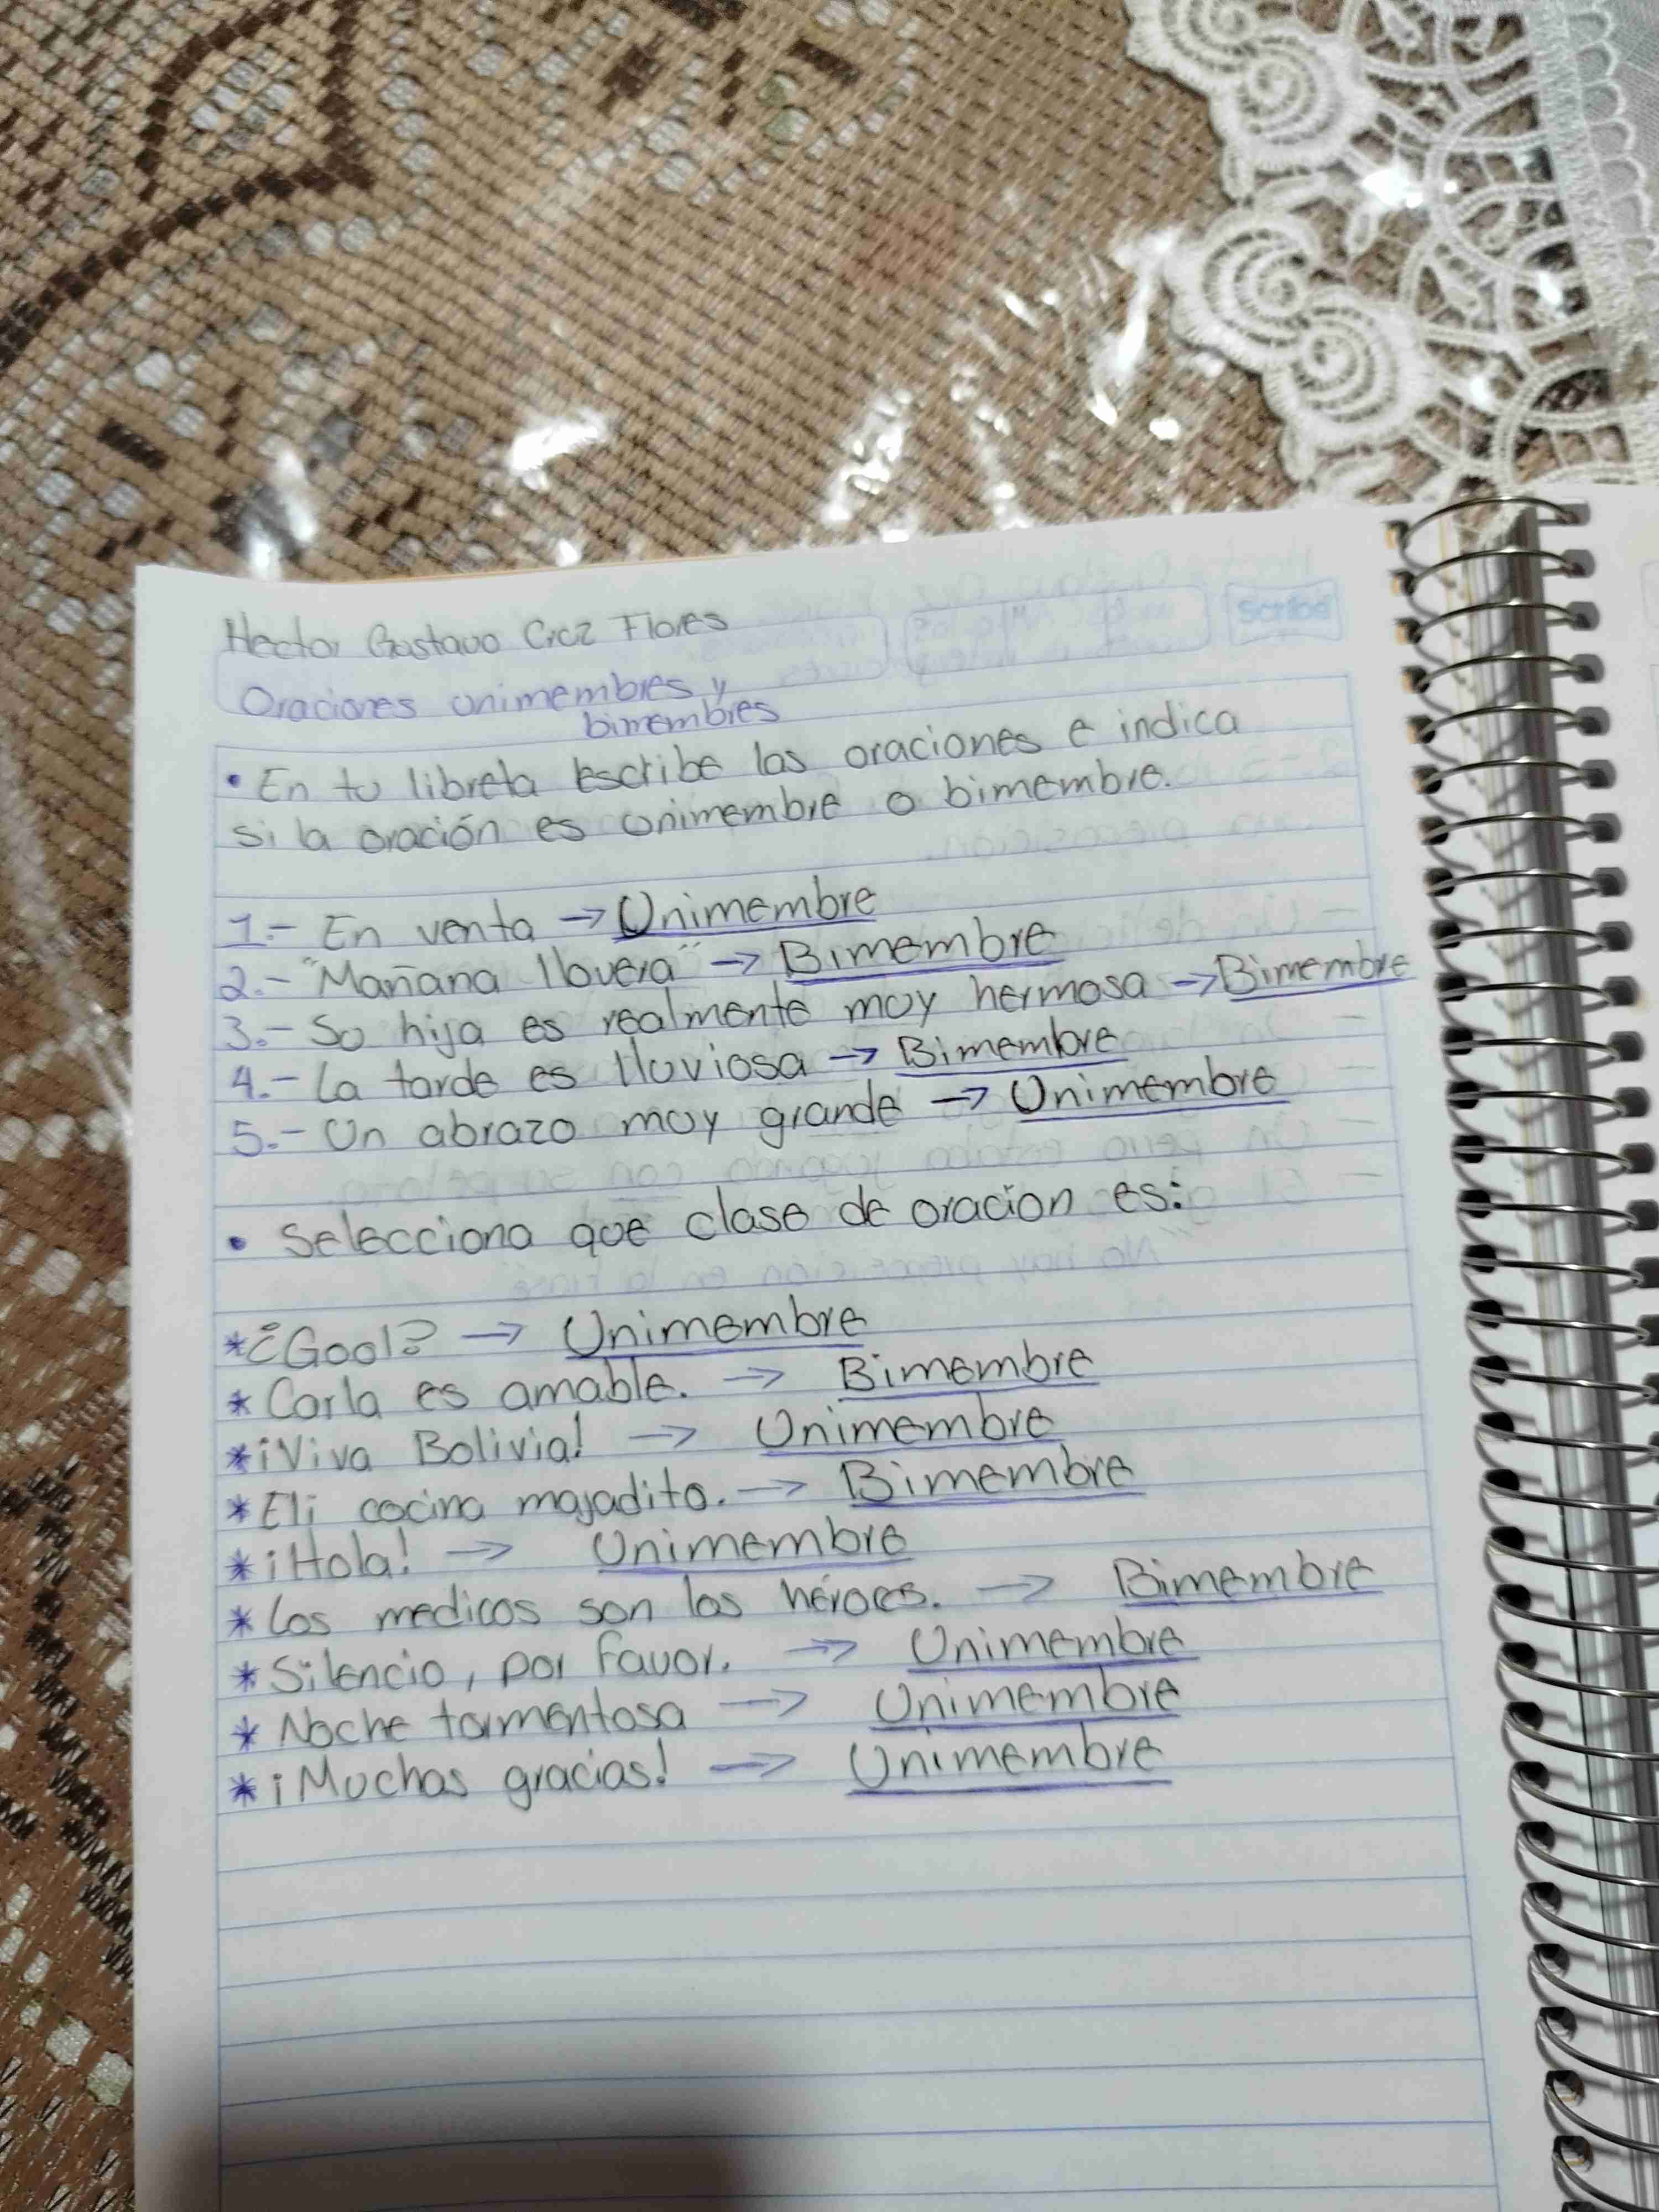 Hector Gustavo Cruz Flores
Scribe
Oraciones unimembres y
bimembres
• En tu libreta Escribe las oraciones e indica
si la oración es unimembre o bimembre.
1.- En venta → Unimembre
2.- "Mañana llovera" → Bimembre
3.- Su hija es realmente muy hermosa → Bimembre
4.- La tarde es lluviosa → Bimembre
5.- Un abrazo muy grande → Unimembre
• Selecciona que clase de oracion es:
*¿Gool? → Unimembre
* Carla es amable. → Bimembre
*¡Viva Bolivia! → Unimembre
*Eli cocina majadito. → Bimembre
*¡Hola! → Unimembre
*Los medicos son los héroes. → Bimembre
*Silencio, por favor. → Unimembre
* Noche tormentosa → Unimembre
*¡Muchas gracias! → Unimembre